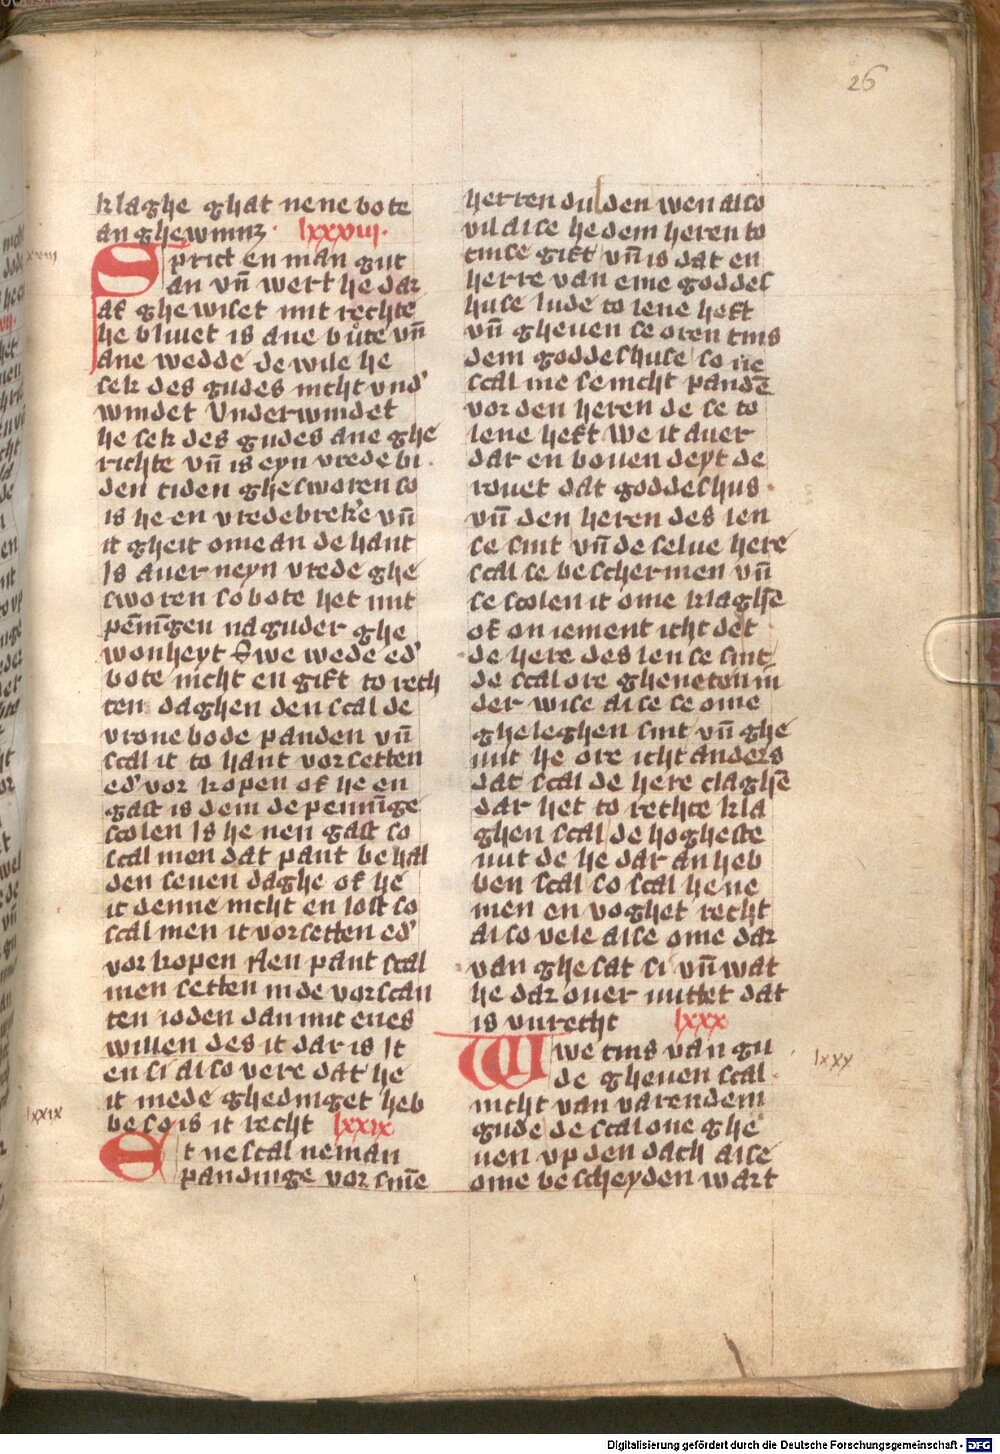 26
klaghe ghat nene bote
an ghewinnz. lxxxiii.
Sprict en man gut
an vn̄ wert he dar
af ghewiset mit rechte
he blivet is ane bůte vn̄
ane wedde de wile he
sek des gudes nicht vnd'
windet Underwindet
he sek des gudes ane ghe
richte vn̄ is eyn vrede bi
den tiden ghesworen so
is he en vredebreke vn̄
it gheit ome an de hant
Is auer neyn vrede ghe
sworen so bote het mit
pēnīgen na guder ghe
wonheyt Swe wede ed'
bote nicht en gift to rech
ten daghen den scal de
vrone bode panden vn̄
scal it to hant vorsetten
ed' vor kopen of he en
gast is dem de pennīge
scolen Is he nen gast so
scal men dat pant behal
den seuen daghe of he
it denne nicht en lost so
scal men it vorsetten ed'
vor kopen Nen pant scal
men setten in de vorscan
ten ioden dan mit enes
willen des it dar is It
en si also vere dat he
it mede ghedinget heb
be so is it recht lxxix
Et ne scal neman
pandinge vor sinē
herren dulden wen also
vil alse he dem heren to
tinse gift vn̄ is dat en
herre van eme goddes
huse lude to lene heft
vn̄ gheuen se oren tins
dem goddeshuse so ne
scal me se nicht pandē
vor den heren de se to
lene heft We it auer
dar en bouen deyt de
rouet dat goddeshus
vn̄ den heren des len
se sint vn̄ de selue here
scal se beschermen vn̄
se scolen it ome klaghē
of on iement icht det
de here des len se sint
de scal ore gheneten in
der wise alse se ome
gheleghen sint vn̄ ghe
nut he ore icht anders
dat scal de here claghē
dar het to rechte kla
ghen scal de hogheste
nut de he dar an heb
ben scal so scal he ne
men en voghet recht
also vele alse ome dar
van ghesat si vn̄ wat
he dar ouer nuttet dat
is vnrecht lxxx
Swe tins van gu
de gheuen scal
nicht van varendem
gude de scal one ghe
uen vp den dach alse
ome bescheyden wart
lxxix
lxxx
Digitalisierung gefördert durch die Deutsche Forschungsgemeinschaft - DFG